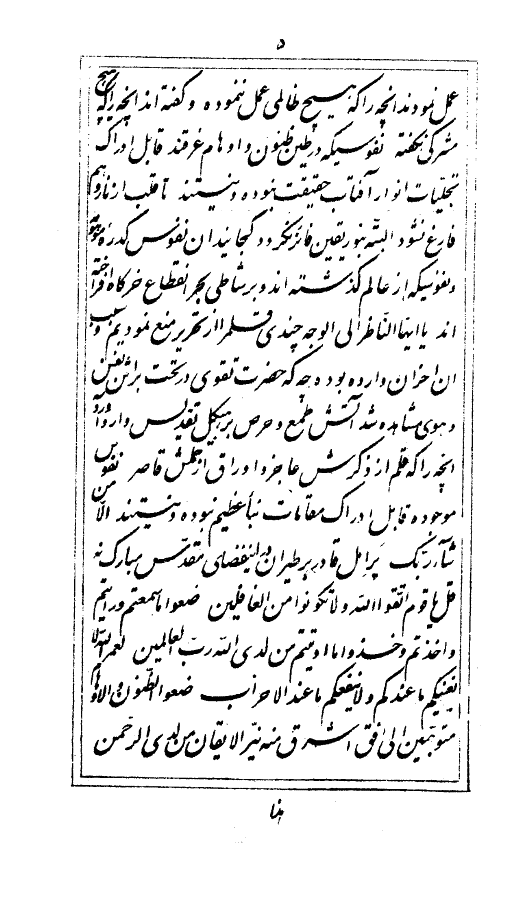 ۵
عمل نمودند انچه را که هیچ ظالمی عمل ننموده و گفته اند انچه را که هیچ
مشرکی نگفته نفوسیکه در طین ظنون و اوهام غرقند قابل ادراک
تجلیات انوار آفتاب حقیقت نبوده و نیستند تا قلب از نار وهم
فارغ نشود البته بنور یقین فائز نگردد کجایند ان نفوس کدره موهومه
و نفوسیکه از عالم گذشته اند و بر شاطی بحر انقطاع خرگاه افراخته
اند یا ایها الناظر الی الوجه چندی قلم را از تحریر منع نمودیم و سبب
ان احزان وارده بوده چه که حضرت تقوی در تحت براثن نفس
و هوی مشاهده شد آتش طمع و حرص بر هیکل تقدیس وارد آورد
انچه را که قلم از ذکرش عاجز و اوراق از حملش قاصر نفوس
موجوده قابل ادراک مقامات نبأ عظیم نبوده و نیستند الا من
شآء ربک پر امل قادر بر طیران در اینفضای مقدس مبارک نه
قل یا قوم اتقوا الله و لا تکونوا من الغافلین ضعوا ما سمعتم و رایتم
و اخذتم و خذوا ما اوتیتم من لدی الله رب العالمین لعمر الله لا
یغنیکم ما عندکم و لا ینفعکم ما عند الاحزاب ضعوا الظنون و الاوهام
متوجهین الی افق اشرق منه نیر الایقان من لدی الرحمن